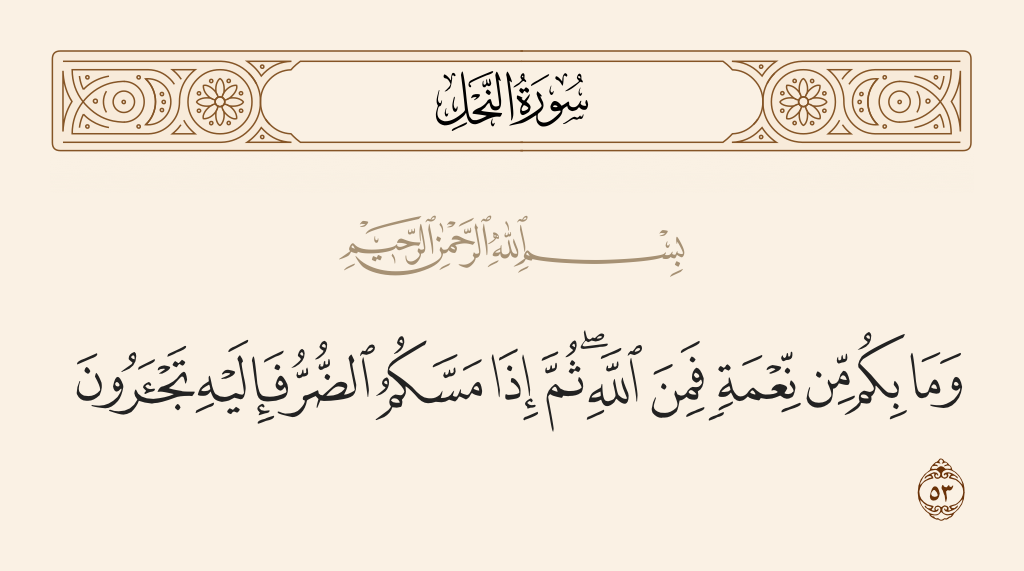 سُورَةُ النَّحْلِ
بِسْمِ ٱللَّهِ ٱلرَّحْمَٰنِ ٱلرَّحِيمِ
وَمَا بِكُم مِّن نِّعْمَةٍ فَمِنَ ٱللَّهِ ۖ ثُمَّ إِذَا مَسَّكُمُ ٱلضُّرُّ فَإِلَيْهِ تَجْـَٔرُونَ
٥٣